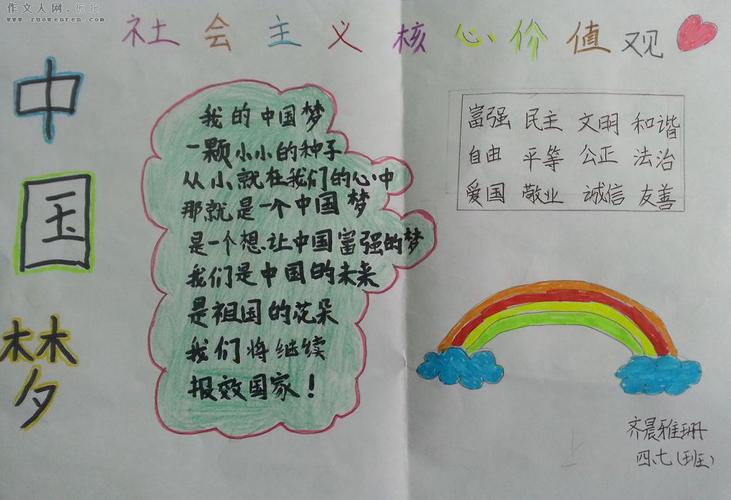 作文人网
www.ruowenren.com
社会主义核心价值观
中国梦
我的中国梦
一颗小小的种子
从小就在我们的心中
那就是一个中国梦
是一个想让中国富强的梦
我们是中国的未来
是祖国的花朵
我们将继续
报效国家！
富强 民主 文明 和谐
自由 平等 公正 法治
爱国 敬业 诚信 友善
齐晨雅珊
四.七(班)